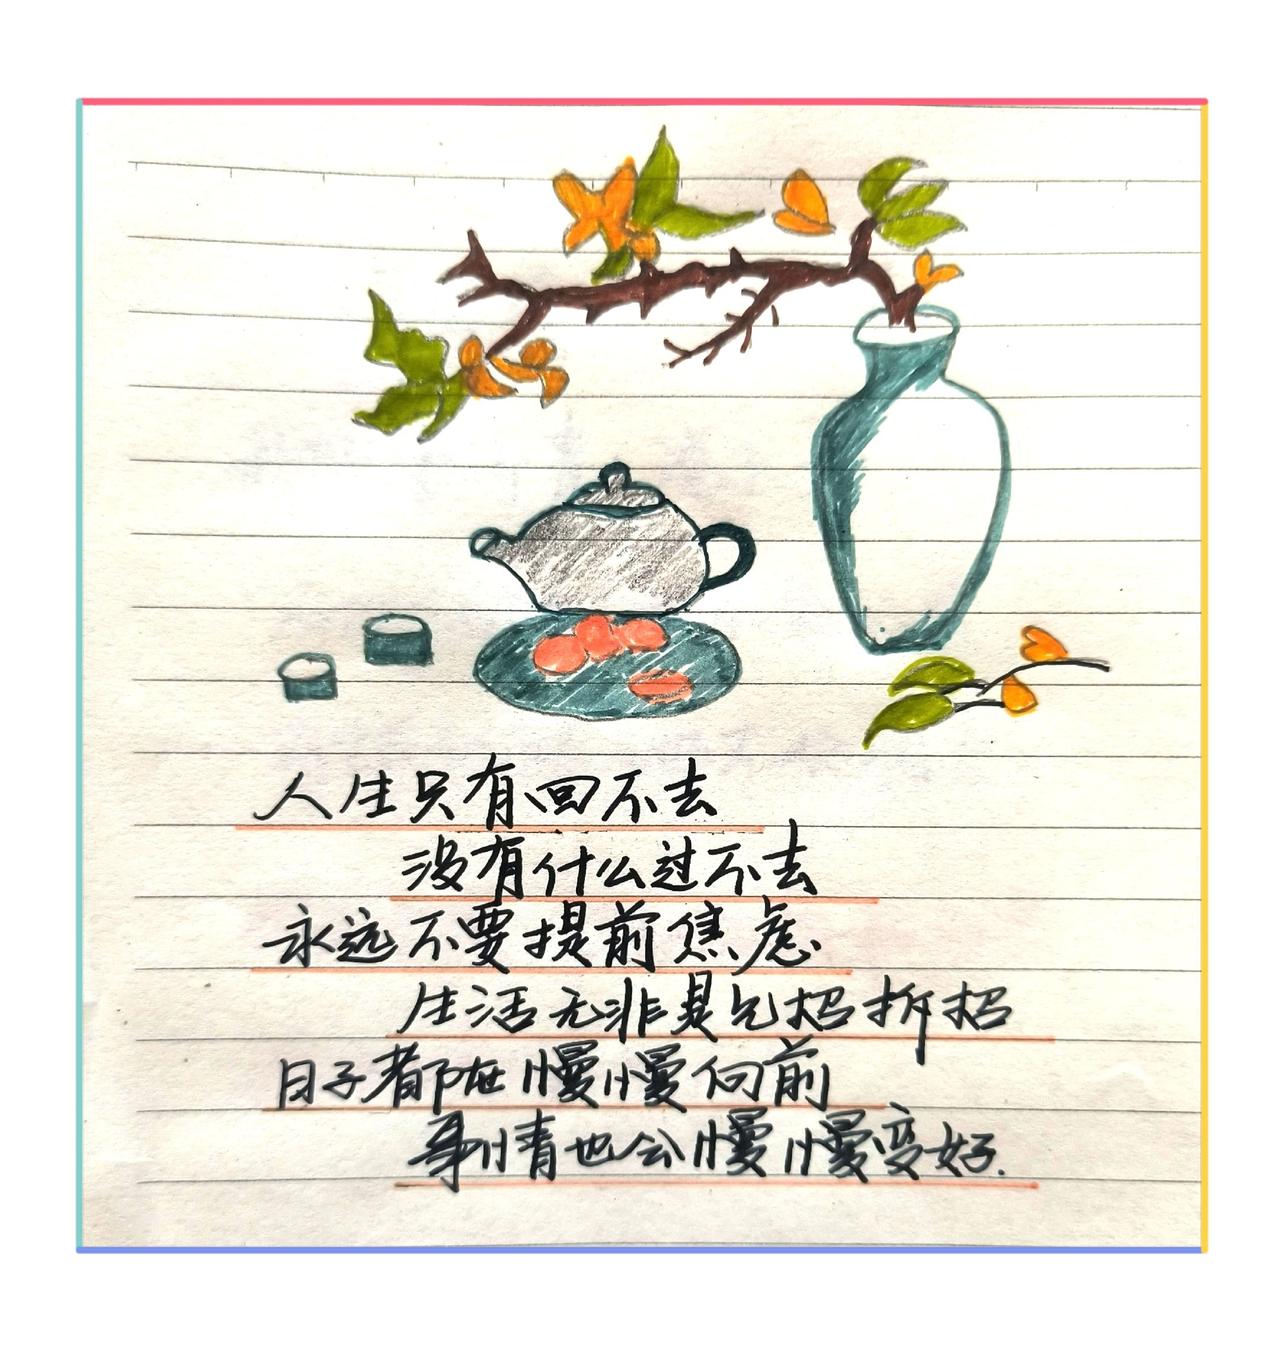 人生只有回不去
没有什么过不去
永远不要提前焦虑
生活无非是见招拆招
日子都在慢慢向前
事情也会慢慢变好.